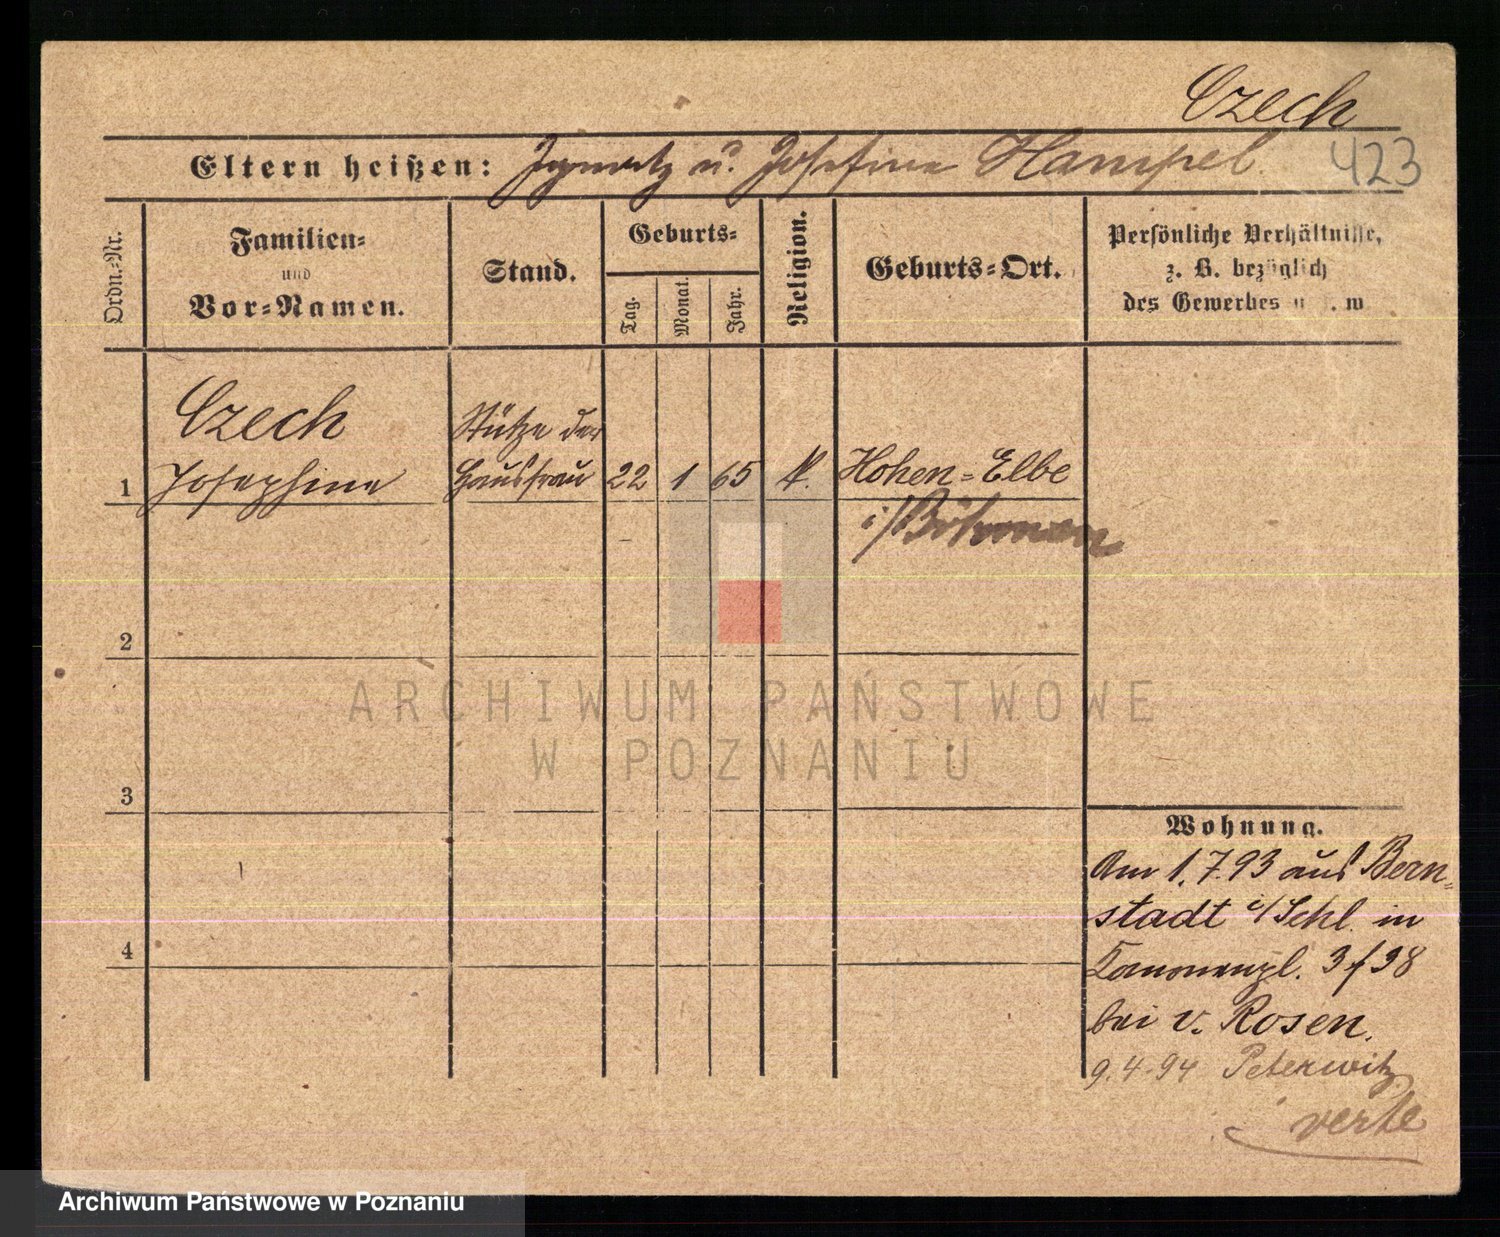 Czech
Eltern heißen: Ignatz u. Josefine Hampel
423
Ordn.=Nr.
Familien=
und
Vor=Namen.
Stand.
Geburts=
Tag.
Monat.
Jahr.
Religion.
Geburts=Ort.
Persönliche Verhältnisse,
z. B. bezüglich
des Gewerbes u. s. w
Czech
Josephine
Stütze der
Hausfrau
1
22
1
65
k.
Hohen=Elbe
i/Böhmen
2
3
4
Wohnung.
Am 1.7.93 aus Bern=
stadt i/Schl. in
Kanonenpl. 3 f 38
bei v. Rosen.
9.4.94 Peterwitz
verte
ARCHIWUM PAŃSTWOWE
W POZNANIU
Archiwum Państwowe w Poznaniu